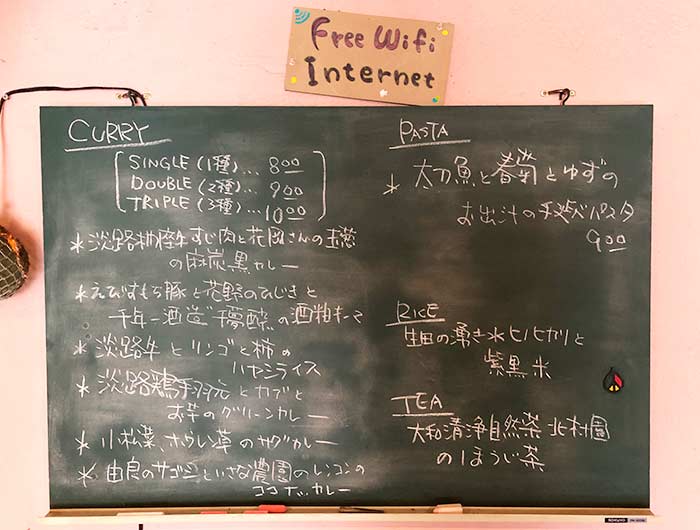 Free Wifi
Internet
CURRY
SINGLE (1種)... 800
DOUBLE (2種)... 900
TRIPLE (3種)... 1000
*淡路 牛すじ肉と花岡さんの玉葱
の麻炭黒カレー
*えびすもち豚と花野のひじきと
千年一酒造 夢酔の酒粕キーマ
*淡路牛とリンゴと柿の
ハヤシライス
*淡路鶏手羽元とカブと
お芋のグリーンカレー
*小松菜、ホウレン草のサグカレー
*由良のサゴシといさな農園のレンコンの
ココナッツカレー
PASTA
*太刀魚と春菊とゆずの
お出汁の パスタ
900
RICE
生田の湧き水ヒノヒカリと
紫黒米
TEA
大和清浄自然茶 北村園
のほうじ茶